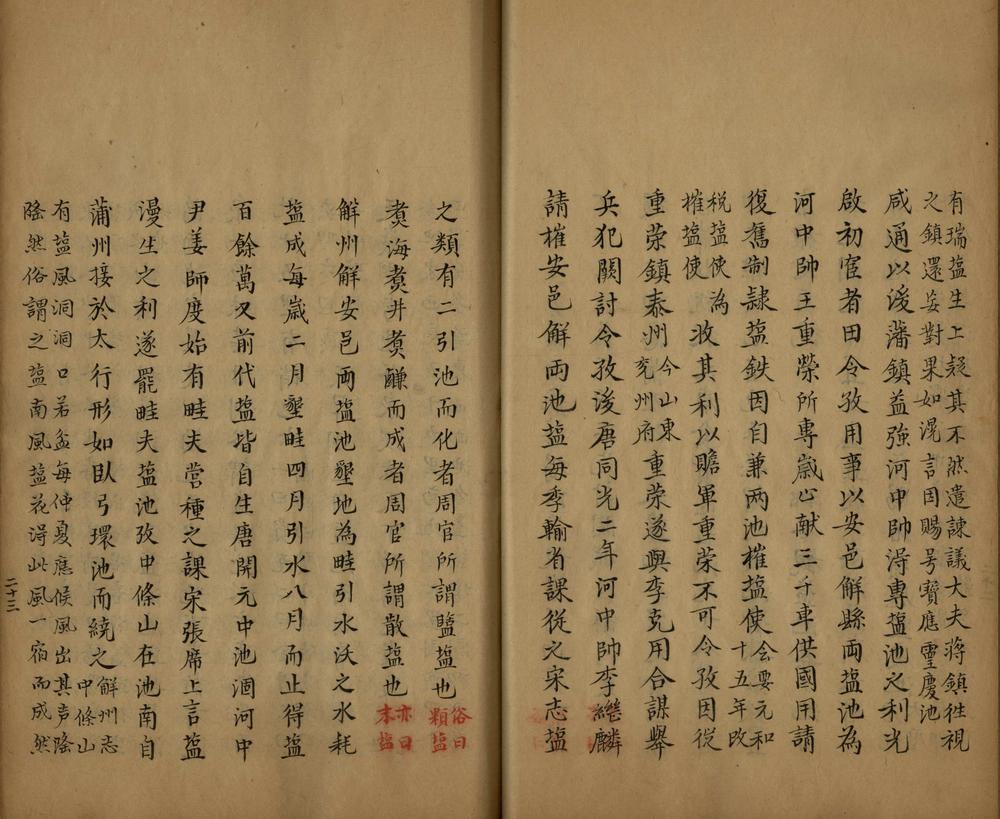 有瑞塩生上疑其不然遣諫議大夫蔣鎮徃視
之鎮還妄對果如滉言因賜号寳應靈慶池
咸通以後藩鎮益強河中帥淂専塩池之利光
啟初宦者田令孜用事以安邑解縣両塩池為
河中帥王重榮所専嵗出献三千車供國用請
復舊制隷塩鉄因自兼两池榷塩使
会要元和
十五年改
税塩使為
榷塩使
收其利以贍軍重荣不可令孜因従
重荣鎮泰州
今山東
兖州府
重荣遂興李克用合謀舉
兵犯闕討令孜後唐同光二年河中帥李繼麟
請榷安邑解両池塩每季輸省課従之宋志塩
之類有二引池而化者周官所謂盬塩也
俗曰
顆塩
煑海煑井煑鹻而成者周官所謂散塩也
亦曰
末塩
解州解安邑両塩池墾地為畦引水沃之水耗
塩成每嵗二月墾畦四月引水八月而止得塩
百餘萬又前代塩皆自生唐開元中池涸河中
尹姜師度始有畦夫営種之課宋張席上言塩
漫生之利遂罷畦夫塩池攷中條山在池南自
蒲州接於太行形如臥弓環池而繞之
解州志
中條山
有塩風洞洞口若盆每仲夏應候風出其声隆
隆然俗謂之塩南風塩花淂此風一宿而成然
二十三